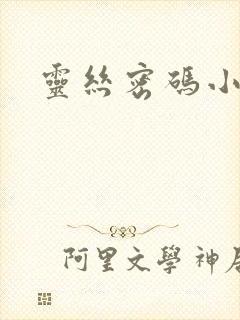 靈絲密碼小
阿里文學 神居